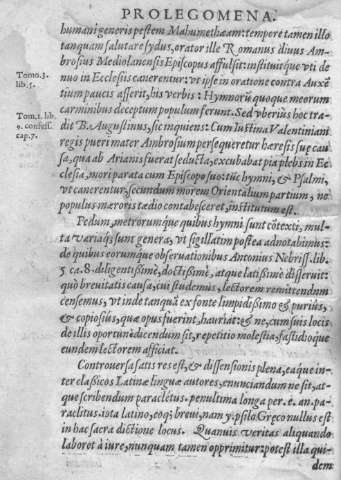 PROLEGOMENA.
humani generis pestem Mahumetheam: tempore tamen illo
tanquam salutare sydus, orator ille Romanus diuus Am-
brosius Mediolanensis Episcopus affulsit: instituitque vti de
nuo in Ecclesiis canerentur: vt ipse in oratione contra Auxẽ
Tomo. 3. lib. 5.
tium paucis asserit, his verbis: Hymnorũ quoque meorum
carminibus deceptum populum ferunt. Sed vberius hoc tra-
Tom. 1. lib. 9. confess. cap. 7.
dit B. Augustinus, sic inquiens: Cum Iustina Valentiniani
regis pueri mater Ambrosium persequeretur hæresis suę cau
sa, qua ab Arianis fuerat seducta, excubabat pia plebs in Ec
clesia, mori parata cum Episcopo suo: tũc hymni, & Psalmi,
vt canerentur, secundum morem Orientalium partium, ne
populus mæroris tædio contabesceret, institutum est.
Pedum, metrorumque quibus hymni sunt cõtexti, mul-
ta variaq́; sunt genera, vt sigillatim postea adnotabimus:
de quibus eorumque obseruationibus Antonius Nebriss. lib.
5 ca. 8. diligentissimè, doctissimè, atque latissimè disseruit:
quò breuitatis causa, cui studemus, lectorem remittendum
censemus, vt inde tanquã ex fonte limpidissimo & puriùs,
& copiosiùs, quæ opus fuerint, hauriat: & ne, cum suis locis
de illis oportunè dicendum sit, repetitio molestia, fastidioque
eundem lectorem afficiat.
Controuersa satis res est, & dissensionis plena, eaque in-
ter classicos Latinæ linguæ autores, enunciandum ne sit, at-
que scribendum paracletus. penultima longa per. e. an. pa-
raclitus. iota latino, eoq́; breui, nam y. psilo Gręco nullus est
in hac sacra dictione locus. Quanuis veritas aliquando
laboret à iure, nunquam tamen opprimitur: potest illa qui-
dem